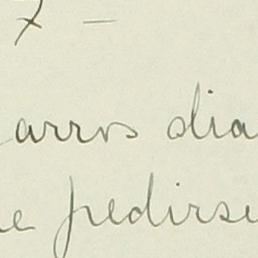 7 -
arros dia
e pedirse